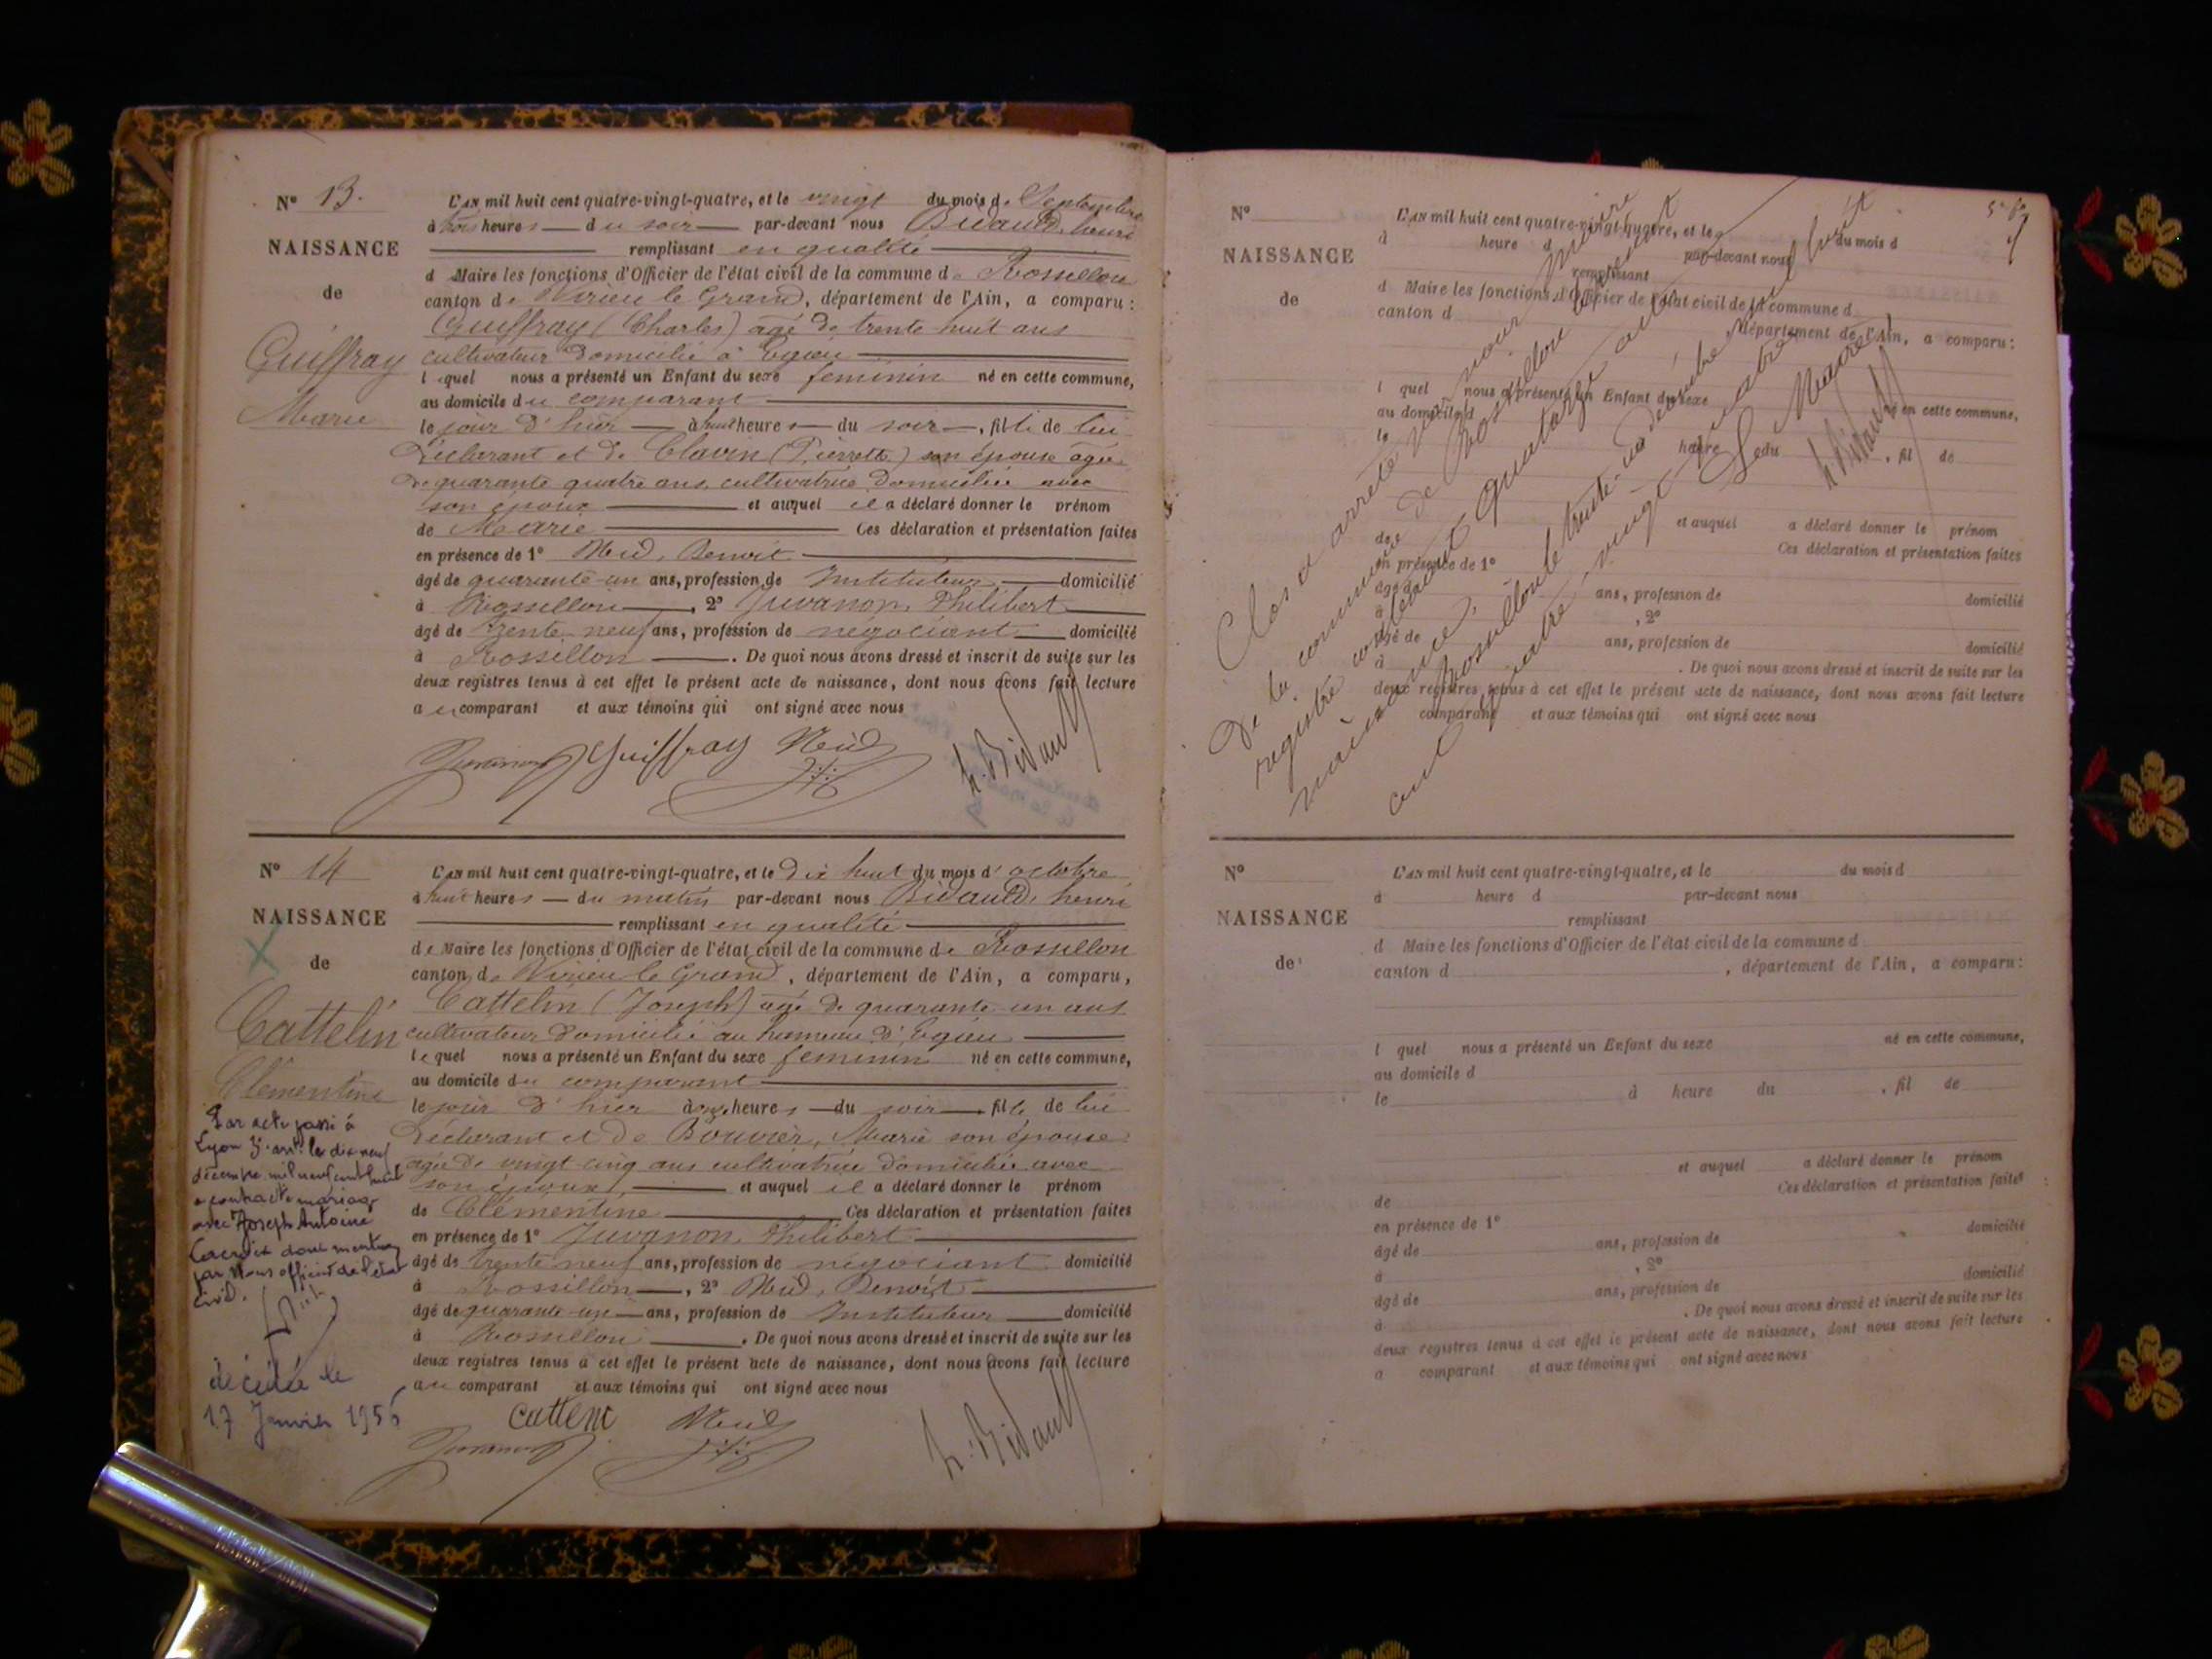 N° 13.
NAISSANCE
de
Guiffray
Marie
L'AN mil huit cent quatre-vingt-quatre, et le vingt du mois de Septembre
à trois heures du soir par-devant nous Bidauld, henri
remplissant en qualité
d Maire les fonctions d'Officier de l'état civil de la commune de Rossillon
canton de Virieu le Grand, département de l'Ain, a comparu :
Guiffray (Charles) âgé de trente huit ans
cultivateur domicilié à Egieu
lequel nous a présenté un Enfant du sexe feminin né en cette commune,
au domicile du comparant
le jour d'hier à huit heures du soir, fille de lui
Déclarant et de Clavin (Pierrette) son épouse agée
de quarante quatre ans, cultivatrice domiciliée avec
son époux et auquel il a déclaré donner le prénom
de Marie Ces déclaration et présentation faites
en présence de 1° Benoit
âgé de quarante-un ans, profession de Instituteur domicilié
à Rossillon, 2° Juvanon, Philibert
âgé de trente neuf ans, profession de négociant domicilié
à Rossillon. De quoi nous avons dressé et inscrit de suite sur les
deux registres tenus à cet effet le présent acte de naissance, dont nous avons fait lecture
au comparant et aux témoins qui ont signé avec nous
Juvanon Guiffray h. Bidauld
N° 14
NAISSANCE
de
Cattelin
Clémentine
Par acte passé à
Lyon 3e arrt le dix neuf
décembre mil neuf cent huit
a contracté mariage
avec Joseph Antoine
Lacroix dont mention
par Nous officier de l'état
civil.
décédée le
17 Janvier 1956
L'AN mil huit cent quatre-vingt-quatre, et le dix huit du mois d'octobre
à huit heures du matin par-devant nous Bidauld, henri
remplissant en qualité
de Maire les fonctions d'Officier de l'état civil de la commune de Rossillon
canton de Virieu le Grand, département de l'Ain, a comparu,
Cattelin (Joseph) âgé de quarante un ans
cultivateur domicilié au hameau d'Egieu
lequel nous a présenté un Enfant du sexe feminin né en cette commune,
au domicile du comparant
le jour d'hier à onze heures du soir, fille de lui
Déclarant et de Bouvier, Marie son épouse
agée de vingt-cinq ans cultivatrice domiciliée avec
son époux, et auquel il a déclaré donner le prénom
de Clémentine Ces déclaration et présentation faites
en présence de 1° Juvanon, Philibert
âgé de trente neuf ans, profession de négociant domicilié
à Rossillon, 2° Benoit
âgé de quarante-un ans, profession de Instituteur domicilié
à Rossillon. De quoi nous avons dressé et inscrit de suite sur les
deux registres tenus à cet effet le présent acte de naissance, dont nous avons fait lecture
au comparant et aux témoins qui ont signé avec nous
Juvanon h. Bidauld
N°
NAISSANCE
de
L'AN mil huit cent quatre-vingt-quatre, et le du mois d
à heure d par-devant nous
remplissant
d Maire les fonctions d'Officier de l'état civil de la commune d
canton d département de l'Ain, a comparu :
l quel nous a présenté un Enfant du sexe né en cette commune,
au domicile d
le heure du, fil de
et auquel a déclaré donner le prénom
de Ces déclaration et présentation faites
en présence de 1°
âgé de ans, profession de domicilié
à, 2°
âgé de ans, profession de domicilié
à. De quoi nous avons dressé et inscrit de suite sur les
deux registres tenus à cet effet le présent acte de naissance, dont nous avons fait lecture
comparant et aux témoins qui ont signé avec nous
Clos et arrêté par nous maire
de la commune de Rossillon le présent
registre contenant quatorze actes de
naissance, Rossillon le trente-un décembre mil huit
cent quatre-vingt-quatre
Le Maire
h. Bidauld
N°
NAISSANCE
de
L'AN mil huit cent quatre-vingt-quatre, et le du mois d
à heure d par-devant nous
remplissant
d Maire les fonctions d'Officier de l'état civil de la commune d
canton d, département de l'Ain, a comparu :
l quel nous a présenté un Enfant du sexe né en cette commune,
au domicile d
le à heure du, fil de
et auquel a déclaré donner le prénom
de Ces déclaration et présentation faites
en présence de 1°
âgé de ans, profession de domicilié
à, 2°
âgé de ans, profession de domicilié
à. De quoi nous avons dressé et inscrit de suite sur les
deux registres tenus à cet effet le présent acte de naissance, dont nous avons fait lecture
a comparant et aux témoins qui ont signé avec nous